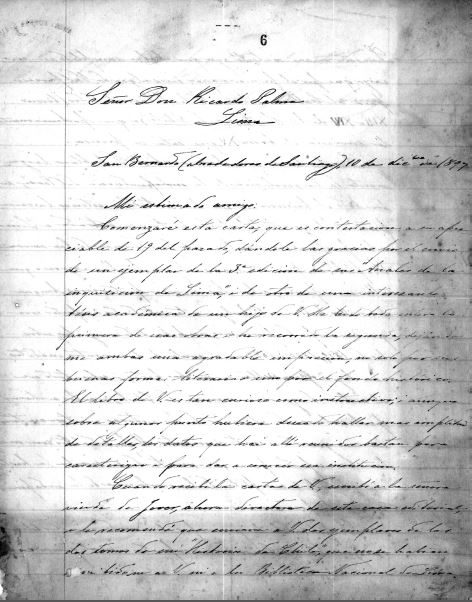 6
Señor Don Ricardo Palma
Lima
San Bernardo (alrededores de Santiago), 10 de dic.bre de 1897
Mi estimado amigo:
Comenzaré esta carta, que es contestacion a su apre
ciable de 19 del pasado, dándole las gracias por el envio
de un ejemplar de la 3ª edicion de sus "Anales de la
inquisicion de Lima", i de otro de una interesante
tésis académica de un hijo de V. He
primera de esas obras i he recorrido la segunda, deján
me ambas una agradable impresion, no solo por sus
buenas formas literarias sino por el fondo
El libro de V. es tan curioso como instructivo; i aunque
sobre algunos puntos hubiera deseado hallar mas amplitud
de detalles, los datos que hai allí reunidos bastan para
caracterizar i para dar a conocer esa institucion.
Cuando recibí la carta de V., escribí a la señora
viuda de Jover, ahora directora de esta casa editorial,
i le recomendé que enviara a V. dos ejemplares de los
dos tomos de mi "Historia de Chile", que no se habian
a V. ni a la Biblioteca Nacional de Lima